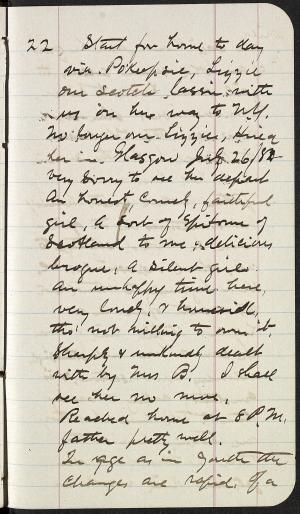 22 Start for home to day
via. Po'keepsie, Lizzie
our Scotch lassie with
us on her way to N.Y.
No longer our Lizzie, hired
her in Glasgow July 26/82
very sorry to see her depart
An honest comely, faithful
girl, A sort of Epitome of
Scotland to me; delicious
brogue; A silent girl.
An unhappy time here,
very lonely, & homesick,
tho' not willing to own it.
Sharply & unkindly dealt
with by Mrs B. I shall
see her no more.
Reached home at 8 P.M.
father pretty well.
In age as in youth the
changes are rapid. If a